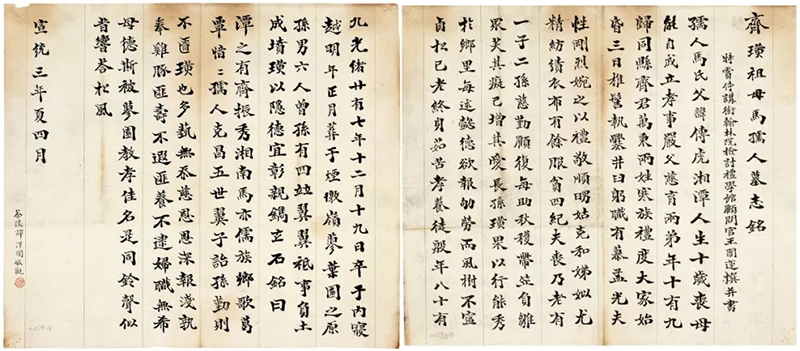 齊璜祖母馬孺人墓志銘
特賞侍講銜翰林院檢討禮學館顧問官王闓運撰并書
孺人馬氏父諱傳虎湘潭人生十歲喪母
能自成立孝事嚴父慈育兩弟年十有九
歸同縣齊君萬秉兩姓寒族禮度大家始
昏三日椎髻執爨井臼躬職有慕孟光夫
性剛烈婉之以禮敬順明姑克和娣姒尤
精紡績衣布有餘服貧四紀夫喪乃老有
一子二孫慈勤顧復每助秋穫帶笠負雛
眾笑其癡己增其愛長孫璜果以行能秀
於鄉里每述懿德欲報劬勞而風樹不寧
貞松已老終身茹苦孝養徒殷年八十有
九光緒廿有七年十二月十九日卒于內寢
越明年正月葬于煙墩嶺蓼葉園之原
孫男六人曾孫有四竝翼翼祇事負土
成墳璜以隱德宜彰親鐫立石銘曰
潭之有齊振秀湘南馬亦儒族鄉歌葛
覃愔愔孺人克昌五世翼子詒孫勤則
不匱璜也多藝無忝慈恩恩深報淺孰
奉雞豚匪壽不遐匪養不逮婦職無希
母德斯被蓼園教孝佳名是同鈴聲似
昔響答松風
宣統三年夏四月
茶陵譚澤闓敬觀